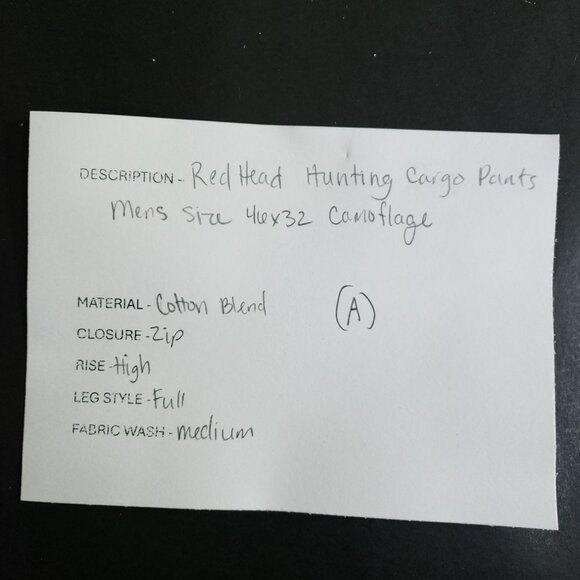 DESCRIPTION - Red Head Hunting Cargo Pants
Mens Size 46x32 Camoflage
MATERIAL - Cotton Blend
(A)
CLOSURE - Zip
RISE - High
LEG STYLE - Full
FABRIC WASH - medium